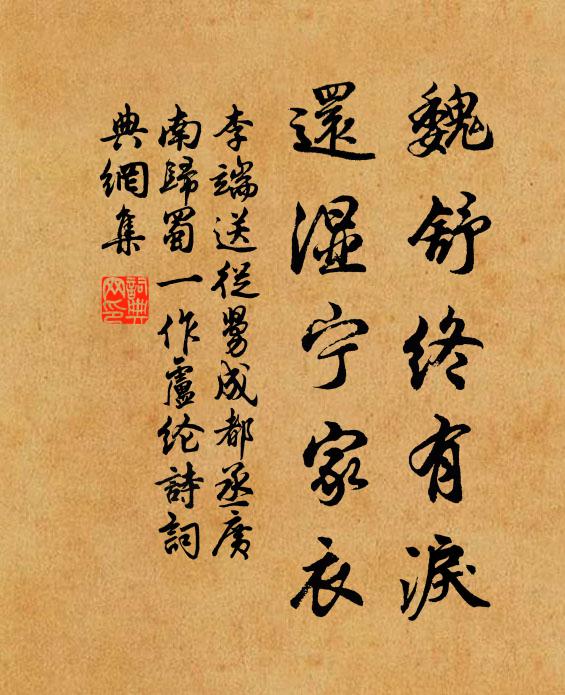 魏舒终有淚
還濕宁家衣
李端送從舅成都丞廣
南歸蜀一作盧纶詩詞
典網集
詞典網印